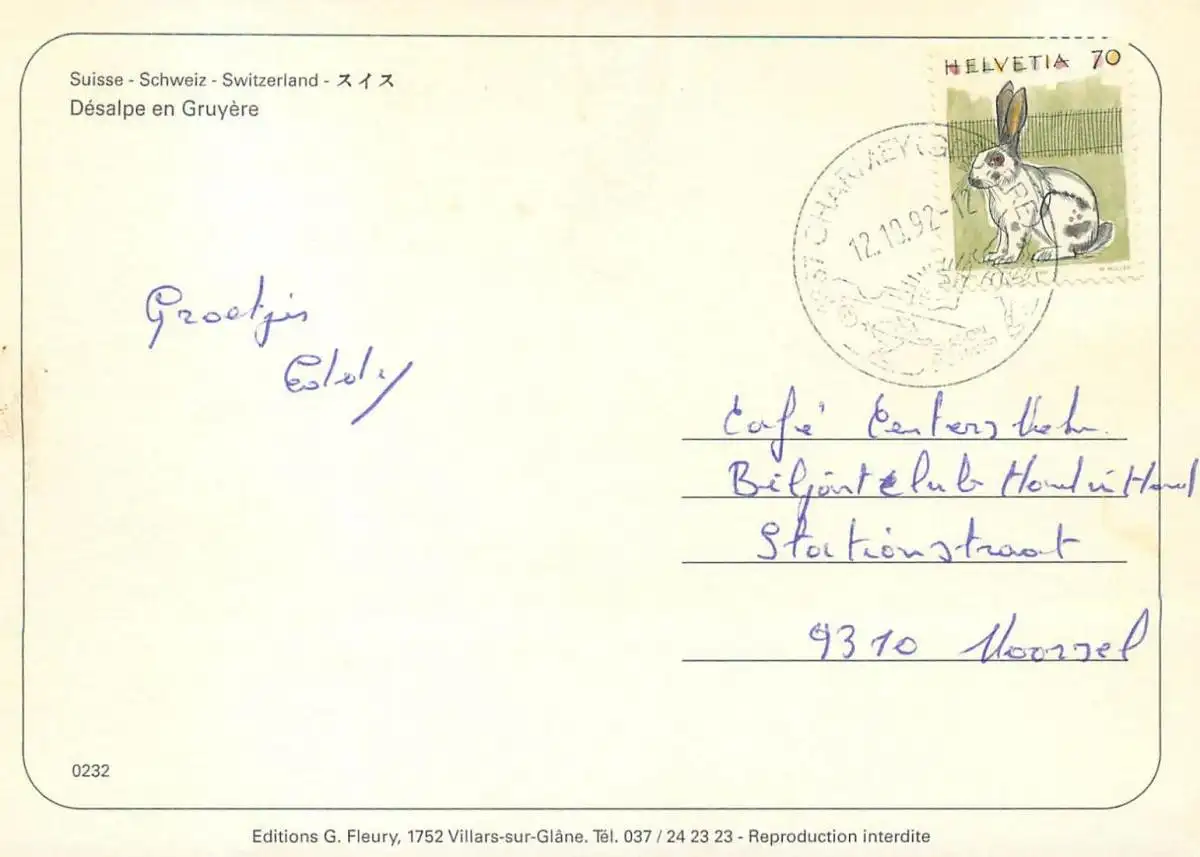 Suisse - Schweiz - Switzerland - スイス
Désalpe en Gruyère
HELVETIA 70
CHARMEY (G
12.10.92-12
Groetjes
Eddy
Café
Biljartclub Hand in Hand
Stationstraat
9310 Moorsel
0232
Editions G. Fleury, 1752 Villars-sur-Glâne. Tél. 037 / 24 23 23 - Reproduction interdite